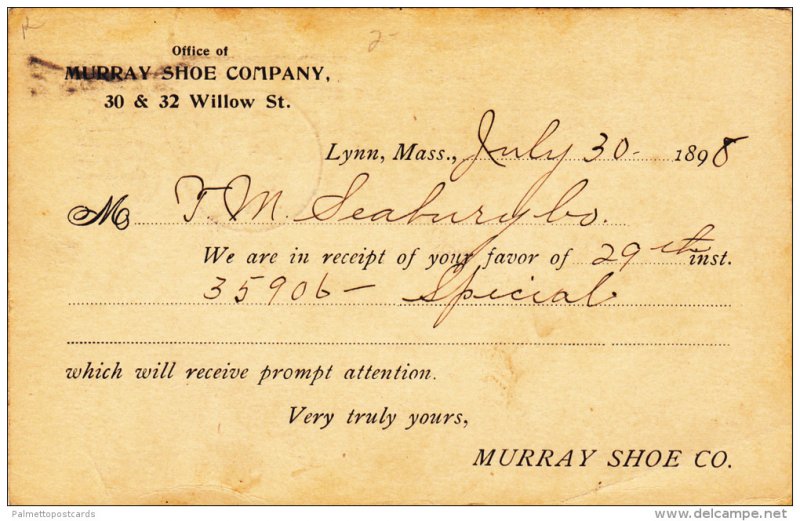 Office of
MURRAY SHOE COMPANY,
30 & 32 Willow St.
Lynn, Mass., July 30 - 1898
M T. M. Seabury Co.
We are in receipt of your favor of 29th inst.
35906 - Special
which will receive prompt attention.
Very truly yours,
MURRAY SHOE CO.
Palmettopostcards
delcampe.net